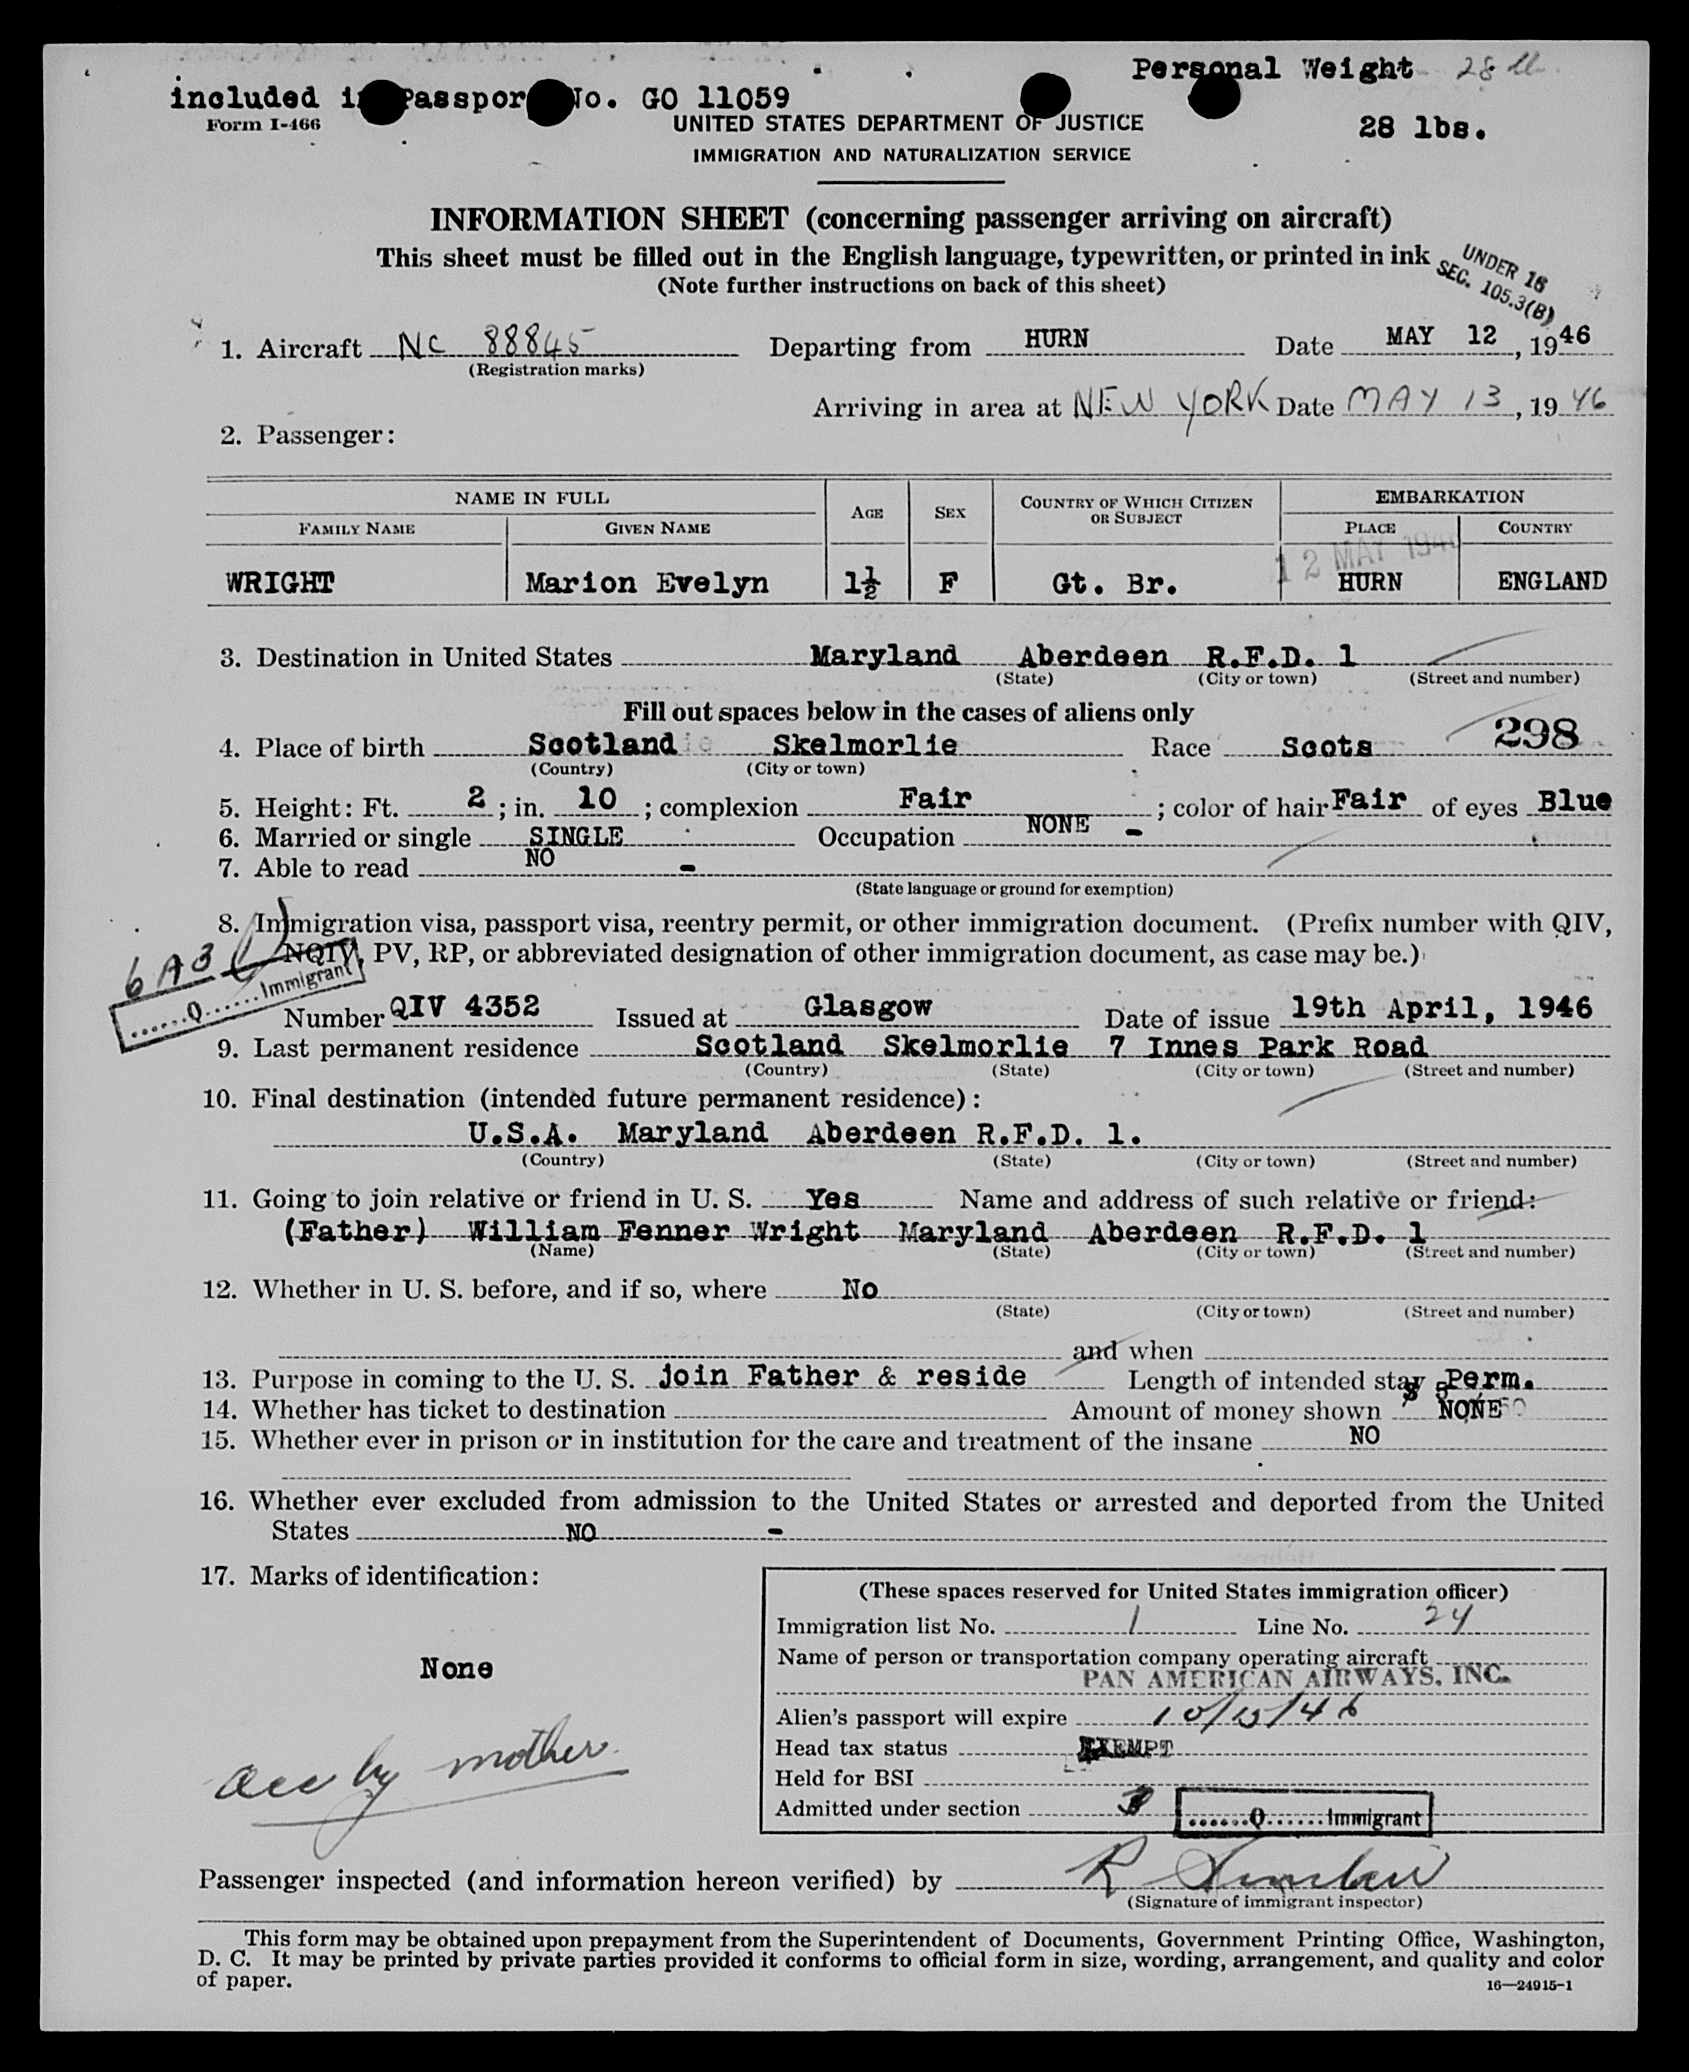 Personal Weight 28 lb.
included in Passport No. GO 11059
Form I-466
UNITED STATES DEPARTMENT OF JUSTICE
28 lbs.
IMMIGRATION AND NATURALIZATION SERVICE
INFORMATION SHEET (concerning passenger arriving on aircraft)
This sheet must be filled out in the English language, typewritten, or printed in ink
(Note further instructions on back of this sheet)
UNDER 16
SEC. 105.3(B)
1. Aircraft NC 88845 Departing from HURN Date MAY 12, 1946
(Registration marks)
Arriving in area at NEW YORK Date MAY 13, 1946
2. Passenger:
NAME IN FULL AGE SEX COUNTRY OF WHICH CITIZEN OR SUBJECT EMBARKATION
FAMILY NAME GIVEN NAME PLACE COUNTRY
12 MAY 1946
WRIGHT Marion Evelyn 1½ F Gt. Br. HURN ENGLAND
3. Destination in United States Maryland Aberdeen R.F.D. 1
(State) (City or town) (Street and number)
Fill out spaces below in the cases of aliens only
298
4. Place of birth Scotland Skelmorlie Race Scots
(Country) (City or town)
5. Height: Ft. 2; in. 10; complexion Fair; color of hair Fair of eyes Blue
6. Married or single SINGLE Occupation NONE -
7. Able to read NO -
(State language or ground for exemption)
8. Immigration visa, passport visa, reentry permit, or other immigration document. (Prefix number with QIV,
NQIV, PV, RP, or abbreviated designation of other immigration document, as case may be.)
6 A3 (1)
......Q......Immigrant
Number QIV 4352 Issued at Glasgow Date of issue 19th April, 1946
9. Last permanent residence Scotland Skelmorlie 7 Innes Park Road
(Country) (State) (City or town) (Street and number)
10. Final destination (intended future permanent residence):
U.S.A. Maryland Aberdeen R.F.D. 1.
(Country) (State) (City or town) (Street and number)
11. Going to join relative or friend in U. S. Yes Name and address of such relative or friend:
(Father) William Fenner Wright Maryland Aberdeen R.F.D. 1
(Name) (State) (City or town) (Street and number)
12. Whether in U. S. before, and if so, where No
(State) (City or town) (Street and number)
and when
13. Purpose in coming to the U. S. join Father & reside Length of intended stay Perm.
14. Whether has ticket to destination Amount of money shown NONE
15. Whether ever in prison or in institution for the care and treatment of the insane NO
16. Whether ever excluded from admission to the United States or arrested and deported from the United
States NO -
17. Marks of identification:
None
acc by mother
(These spaces reserved for United States immigration officer)
Immigration list No. 1 Line No. 24
Name of person or transportation company operating aircraft
PAN AMERICAN AIRWAYS, INC.
Alien's passport will expire 10/15/46
Head tax status EXEMPT
Held for BSI
Admitted under section 3 ......Q......Immigrant
Passenger inspected (and information hereon verified) by R
(Signature of immigrant inspector)
This form may be obtained upon prepayment from the Superintendent of Documents, Government Printing Office, Washington,
D. C. It may be printed by private parties provided it conforms to official form in size, wording, arrangement, and quality and color
of paper.
16—24915-1